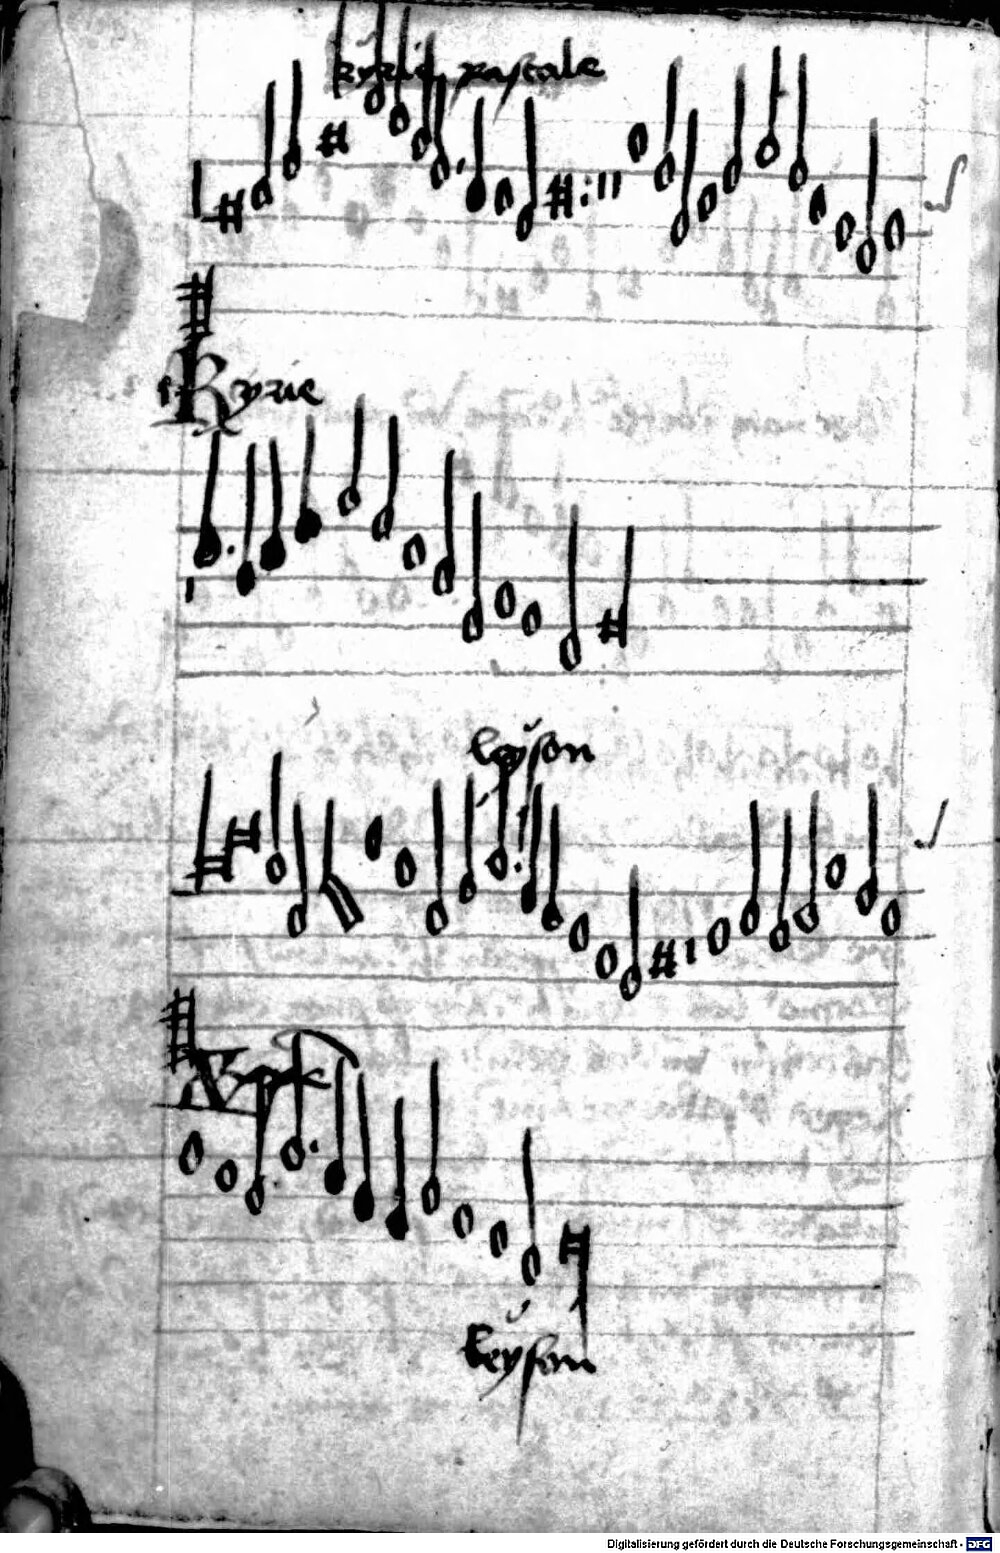 kyrie pascale
Kyrie
leyson
leyson
Digitalisierung gefördert durch die Deutsche Forschungsgemeinschaft - DFG